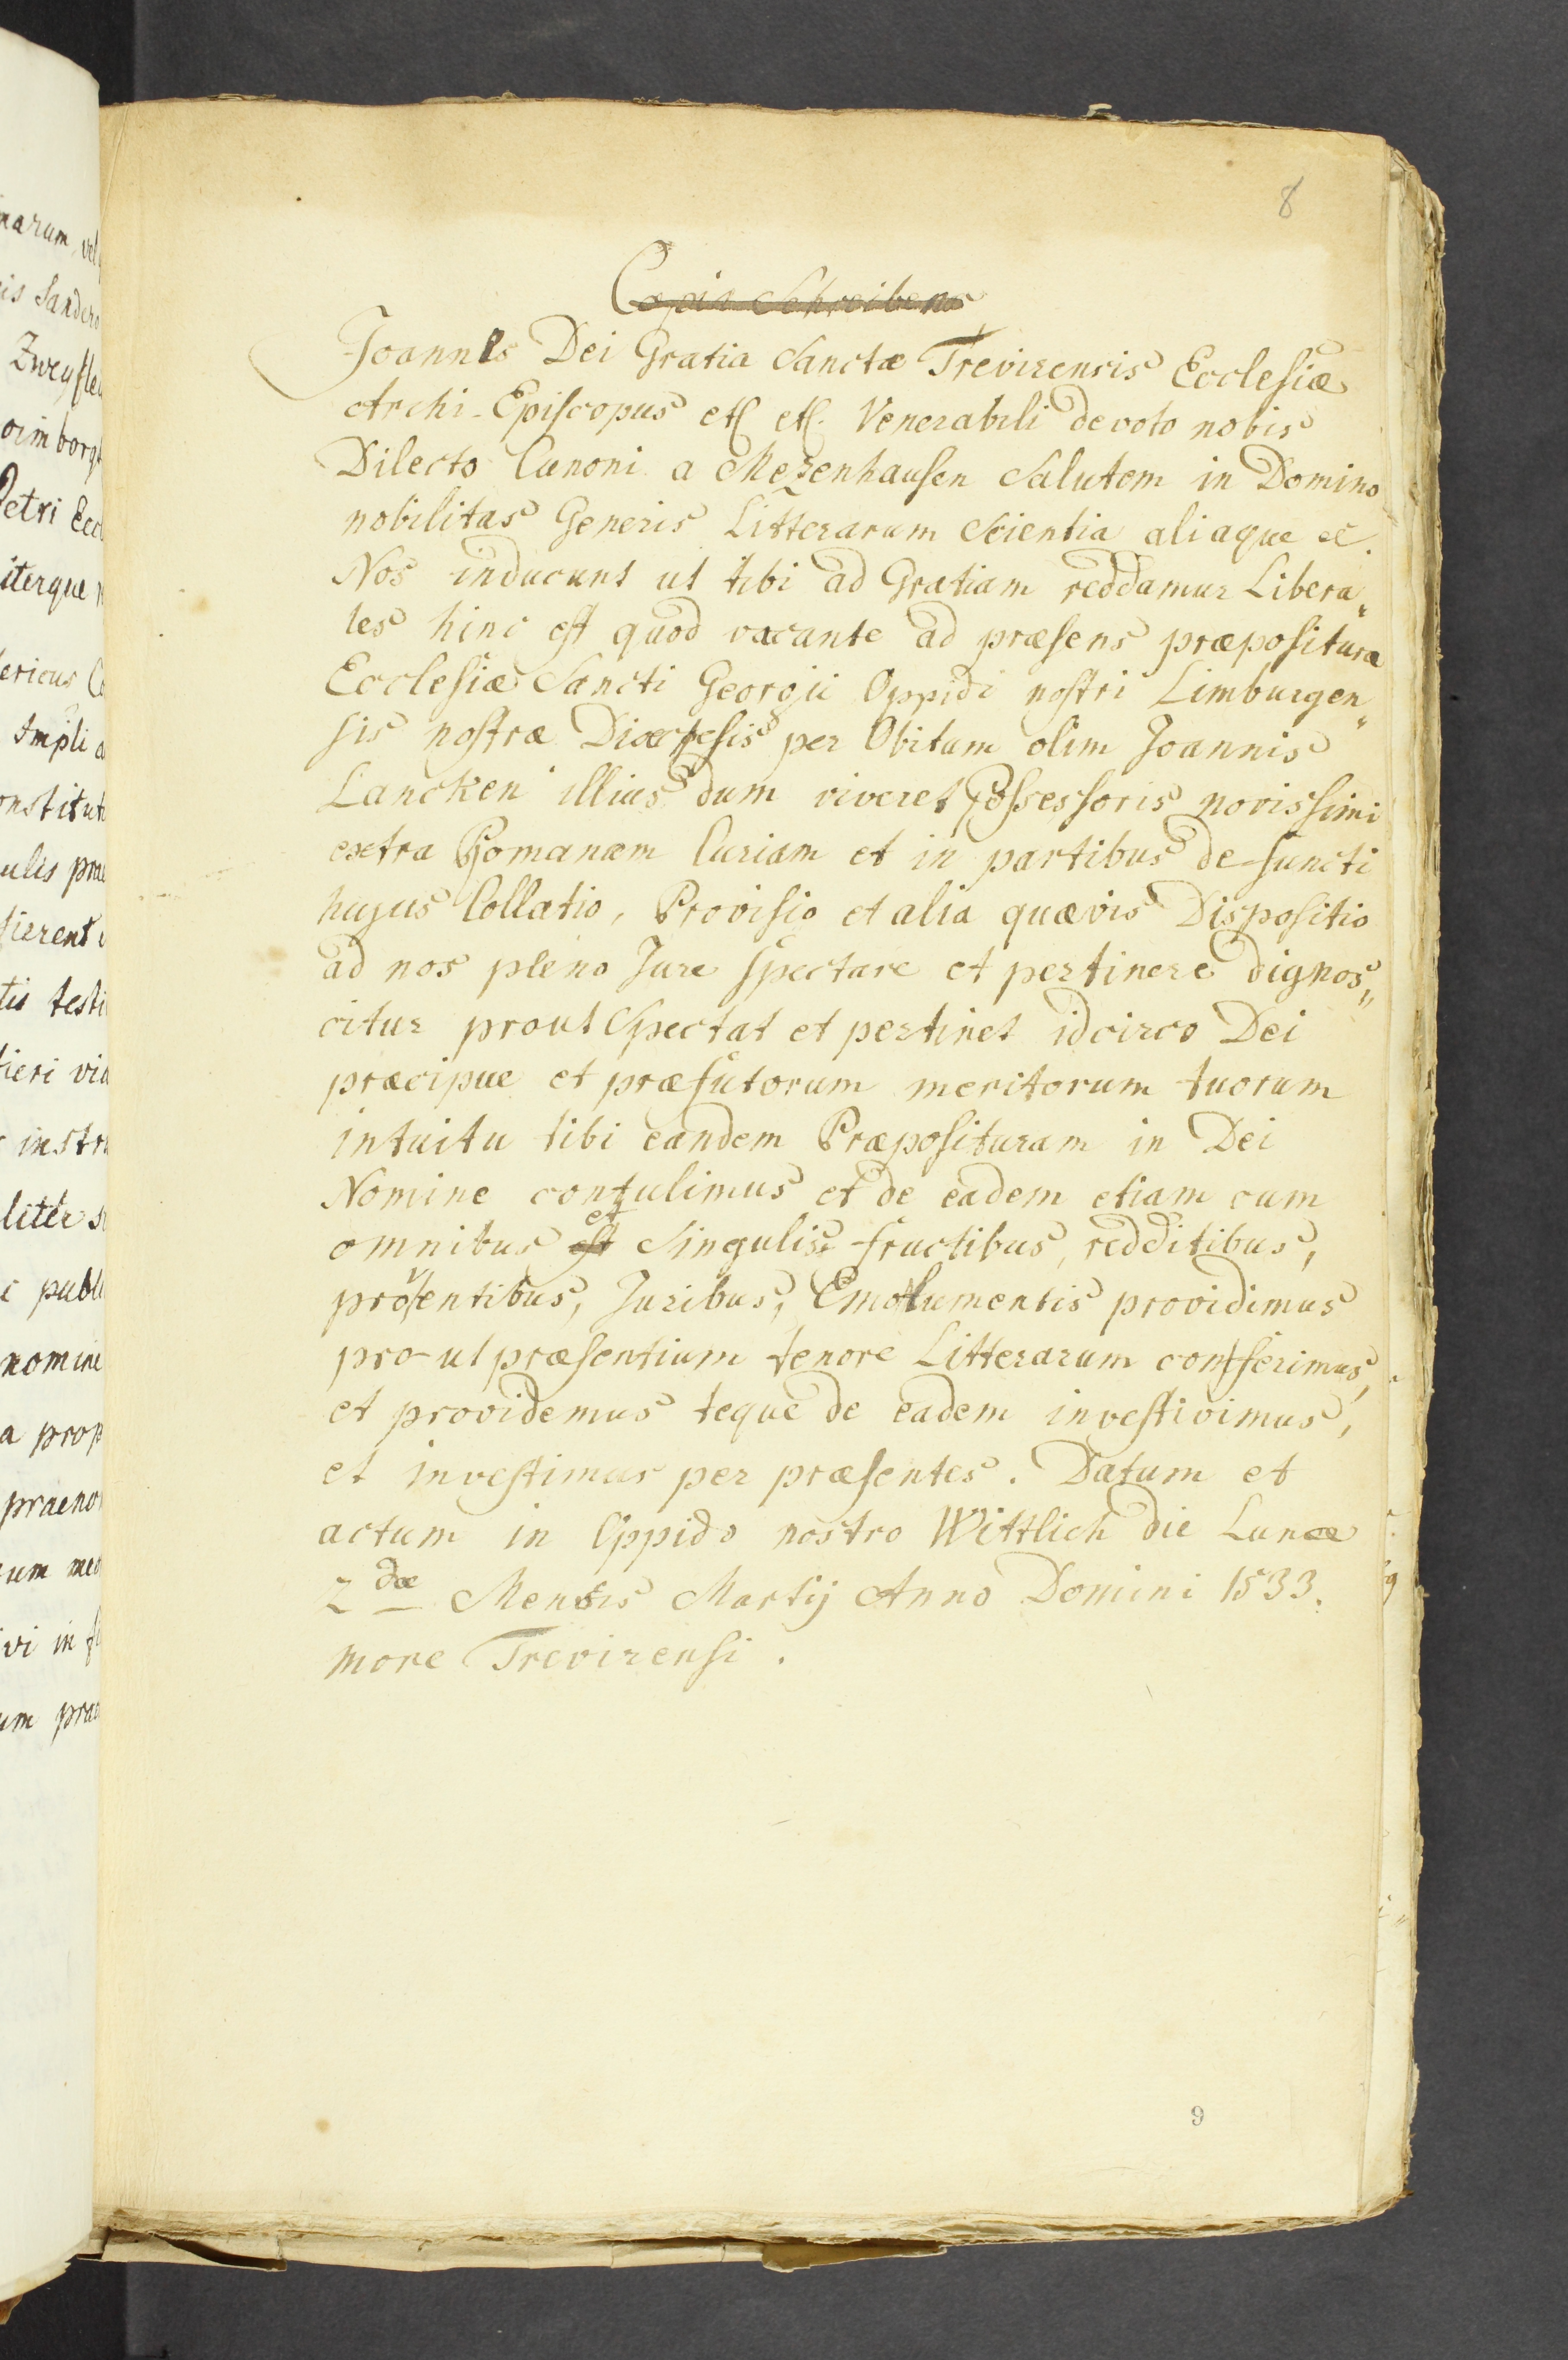 8
Copia Schreibens
Joannes Dei Gratia Sanctæ Trevirensis Ecclesiæ
Archi-Episcopus etc etc. Venerabili devoto nobis
Dilecto Cunoni a Mezenhausen Salutem in Domino
nobilitas Generis Litterarum Scientia aliaque etc.
Nos inducunt ut tibi ad Gratiam reddamur Libera„
les hinc est quod vacante ad præsens præpositura
Ecclesiæ Sancti Georgii Oppidi nostri Limburgen„
sis nostræ Dioecesis per Obitum olim Joannis
Lancken illius dum viveret Possessoris novissimi
extra Romanam Curiam et in partibus defuncti
hujus Collatio, Provisio et alia quævis Dispositio
ad nos pleno Jure Spectare et pertinere dignos„
citur prout Spectat et pertinet idcirco Dei
præcipue et præfutorum meritorum tuorum
intuitu tibi eandem Præposituram in Dei
Nomine contulimus et de eadem etiam cum
omnibus est et Singulis fructibus, redditibus,
proventibus, Juribus, Emolumentis providimus
pro-ut præsentium tenore Litterarum conferimus,
et providemus teque de eadem investivimus,
et investimus per præsentes. Datum et
actum in Oppido nostro Wittlich die Lunæ
2dæ Mensis Martij Anno Domini 1533.
more Trevirensi.
9